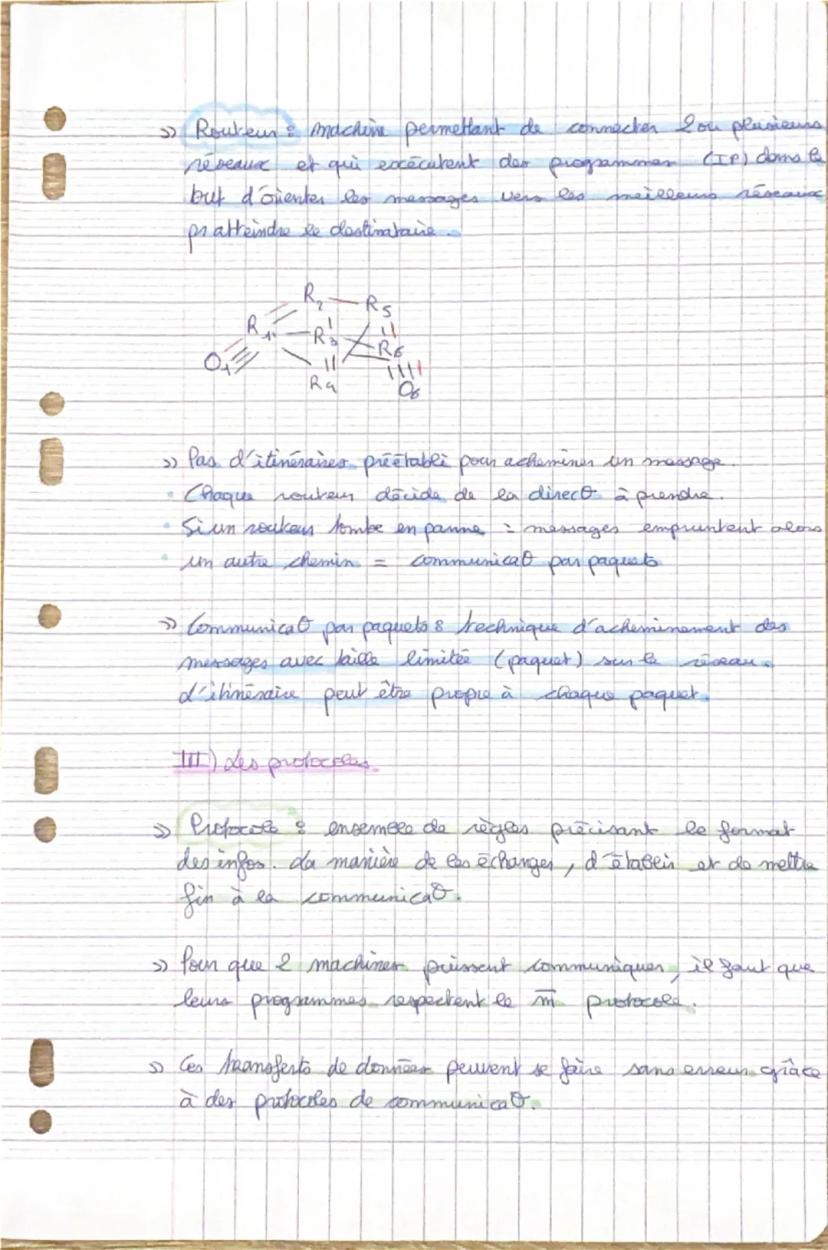 » Routeur : machine permettant de connecter 2 ou plusieurs
réseaux et qui exécutent des programmes (IP) dans le
but d'orienter les messages vers les meilleurs réseaux
pr atteindre le destinataire.
R2 R5
R1 R3 R6
O1 R4 O6
» Pas d'itinéraires préétabli pour acheminer un message.
• Chaque routeur décide de la direct° à prendre.
• Si un routeur tombe en panne = messages empruntent alors
• un autre chemin = communicat° par paquets
» Communicat° par paquets : technique d'acheminement des
messages avec taille limitée (paquet) sur le réseau.
L'itinéraire peut être propre à chaque paquet.
III) Les protocoles
» Protocole : ensemble de règles précisant le format
des infos. La manière de les échanger, d'établir et de mettre
fin à la communicat°.
» Pour que 2 machines puissent communiquer, il faut que
leurs programmes respectent le m̄ protocole.
» Ces transferts de données peuvent se faire sans erreur grâce
à des protocoles de communicat°.